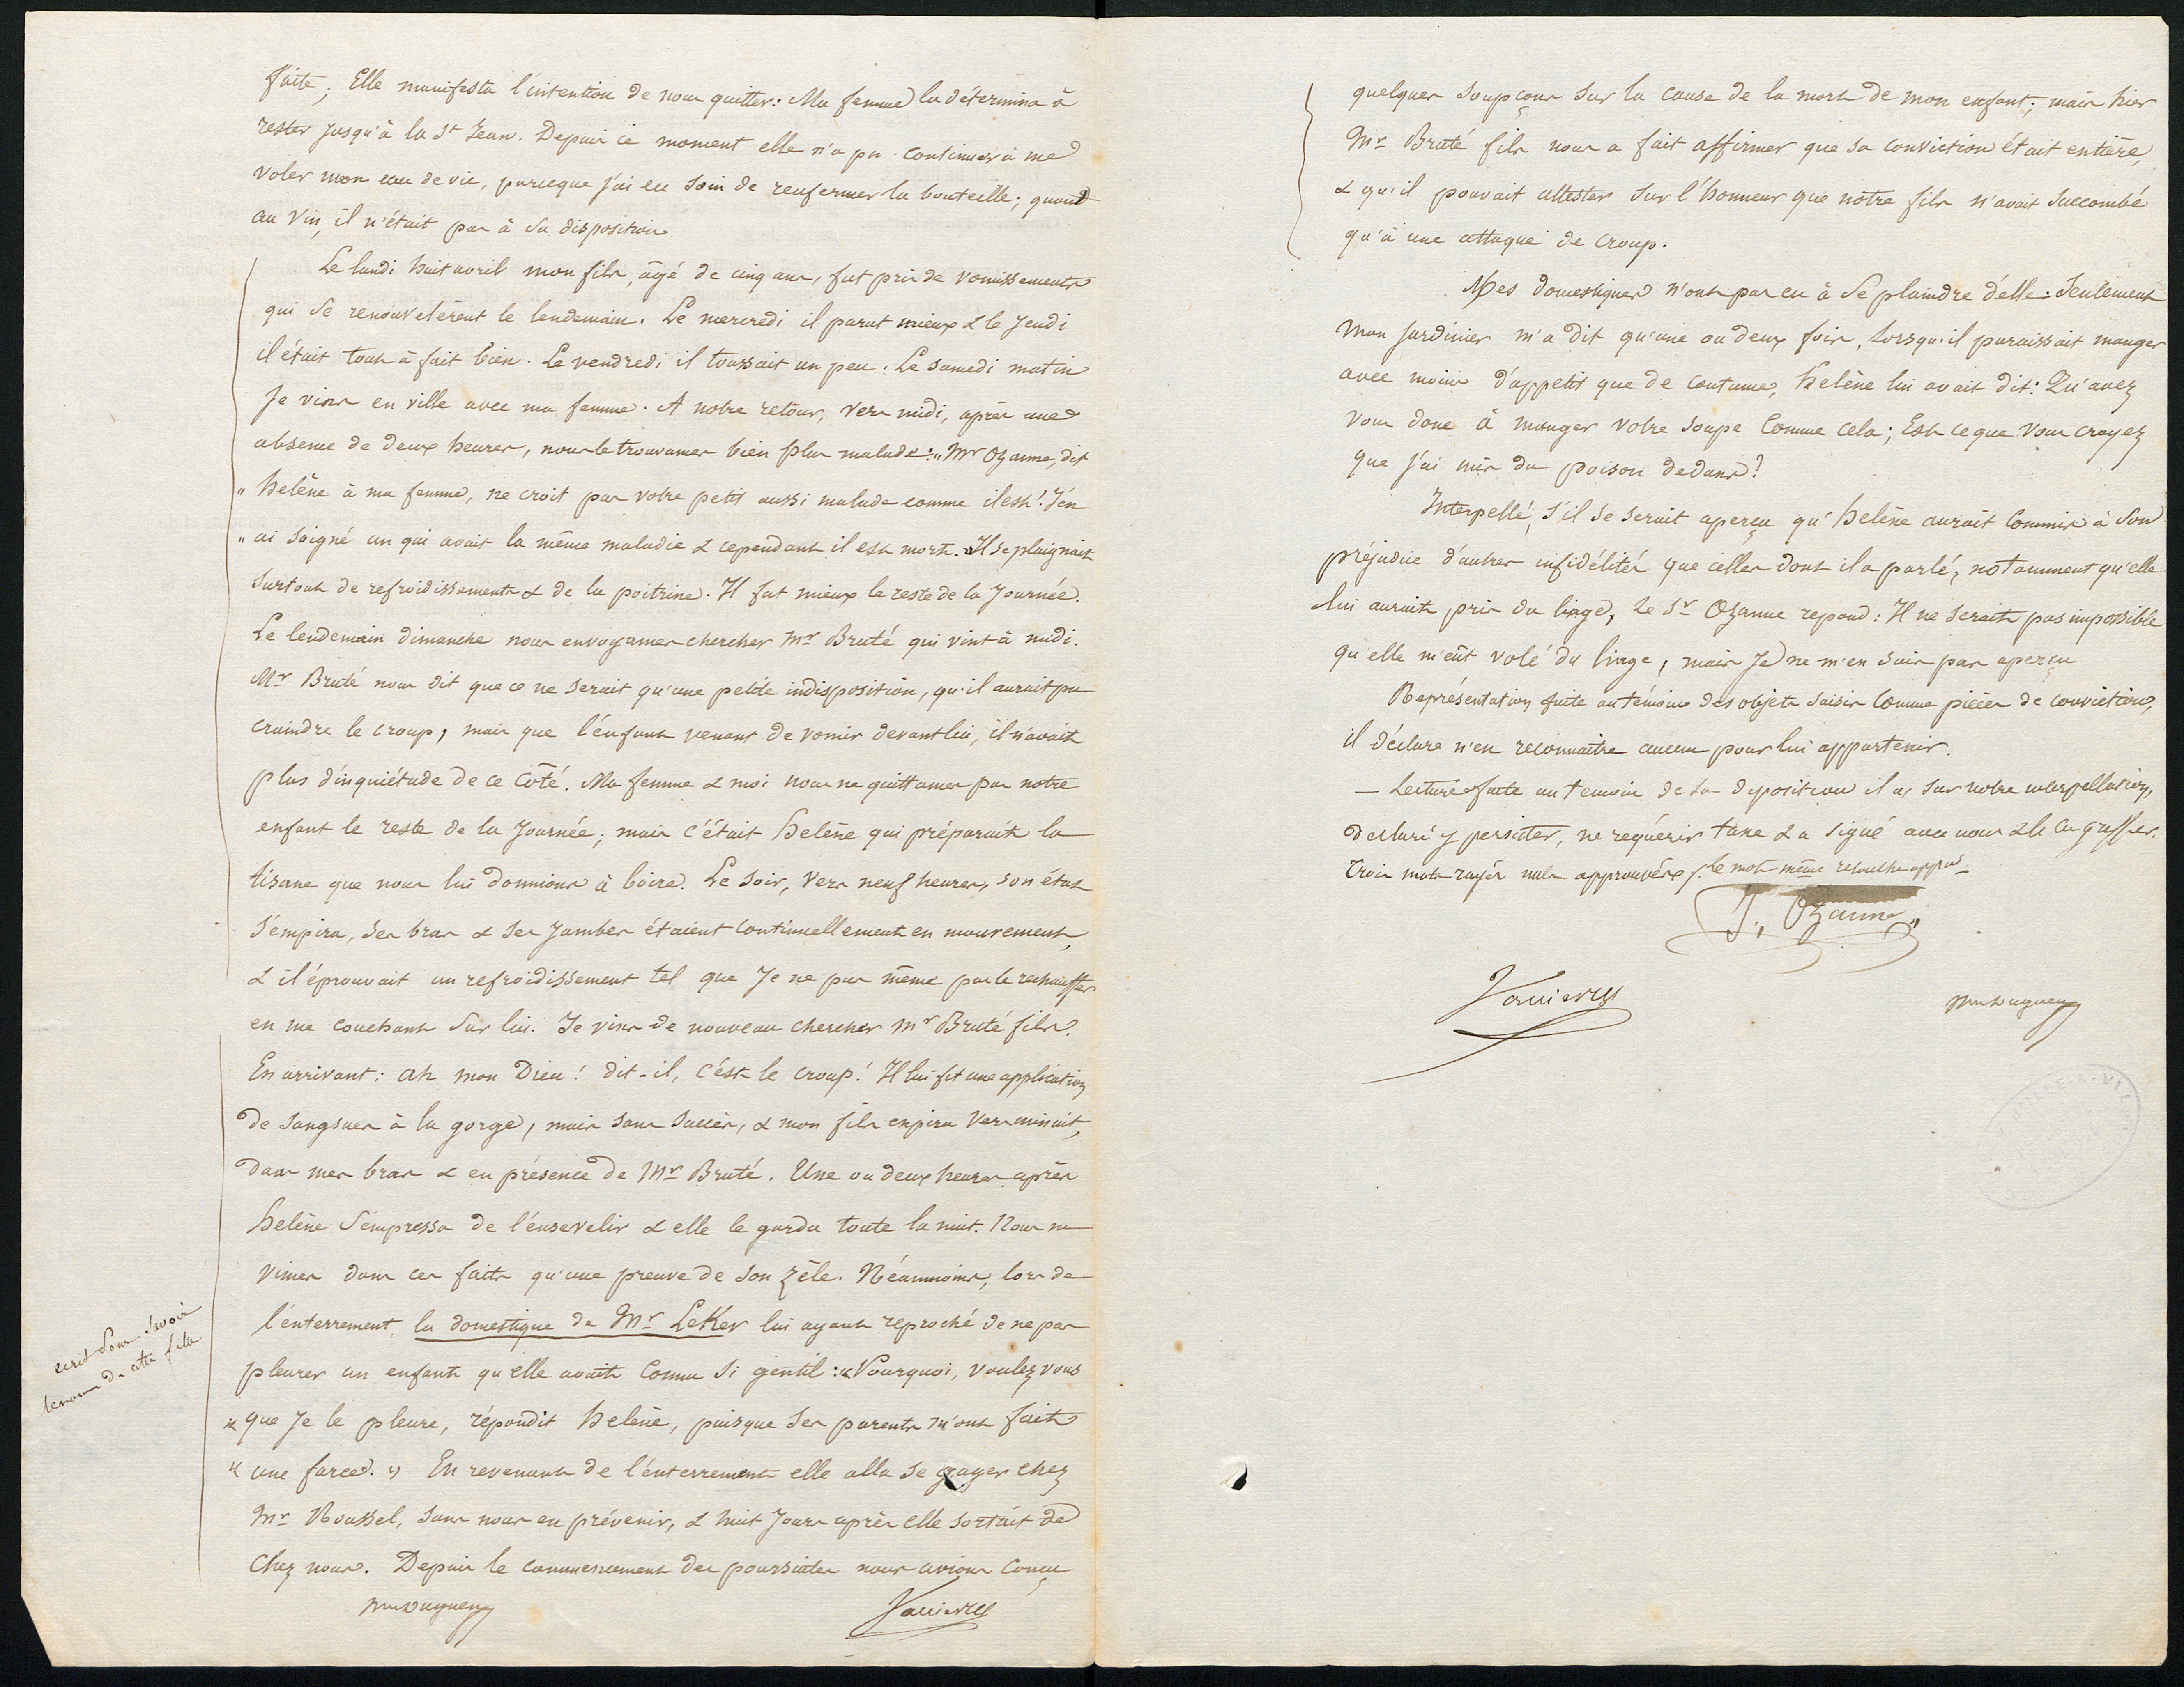 faite; Elle manifesta l'intention de nous quitter: Ma femme la détermina à
rester jusqu'à la St Jean. Depuis ce moment elle n'a pu continuer à me
voler mon eau de vie, parceque j'ai eu soin de renfermer la bouteille; quant
au vin, il n'était pas à sa disposition
Le lundi huit avril mon fils, âgé de cinq ans, fut pris de vomissements
qui se renouvelèrent le lendemain. Le mercredi il parut mieux & le Jeudi
il était tout à fait bien. Le vendredi il toussait un peu. Le samedi matin
Je vins en ville avec ma femme. A notre retour, vers midi, après une
absence de deux heures, nous le trouvames bien plus malade: "Mr Ozanne, dit
" helène à ma femme, ne croit pas votre petit aussi malade comme il est! J'en
" ai soigné un qui avait la même maladie & cependant il est mort." Il se plaignait
surtout de refroidissements & de la poitrine. Il fut mieux le reste de la Journée.
Le lendemain dimanche nous envoyames chercher Mr Bruté qui vint à midi.
Mr Bruté nous dit que ce ne serait qu'une petite indisposition, qu'il aurait pu
craindre le croup, mais que l'enfant venant de vomir devant lui, il n'avait
plus d'inquiétude de ce côté. Ma femme & moi nous ne quittames pas notre
enfant le reste de la Journée; mais c'était helène qui préparait la
tisane que nous lui donnions à boire. Le soir, vers neuf heures, son état
s'empira, ses bras & ses jambes étaient continuellement en mouvement,
& il éprouvait un refroidissement tel que Je ne pus même pas le rechauffer
en me couchant sur lui. Je vins de nouveau chercher Mr Bruté fils.
En arrivant: Ah mon Dieu! dit-il, c'est le croup! Il lui fit une application
de sangsues à la gorge, mais sans succès, & mon fils expira vers minuit,
dans mes bras & en présence de Mr Bruté. Une ou deux heures après
helène s'empressa de l'ensevelir & elle le garda toute la nuit. Nous ne
vimes dans ces faits qu'une preuve de son zèle. Néanmoins, lors de
l'enterrement, la domestique de Mr LeKer lui ayant reproché de ne pas
écrit pour savoir
le nom de cette fille
pleurer un enfant qu'elle avait connu si gentil: "Pourquoi, voulez vous
" que Je le pleure, répondit helène, puisque ses parents m'ont fait
" une farce." En revenant de l'enterrement elle alla se gager chez
Mr Roussel, sans nous en prévenir, & huit Jours après elle sortait de
chez nous. Depuis le commencement des poursuites nous avions conçu
quelques soupçons sur la cause de la mort de mon enfant; mais hier
Mr Bruté fils nous a fait affirmer que sa conviction était entière,
& qu'il pouvait attester sur l'honneur que notre fils n'avait succombé
qu'à une attaque de croup.
Mes domestiques n'ont pas eu à se plaindre d'elle: Seulement
mon jardinier m'a dit qu'une ou deux fois, lorsqu'il paraissait manger
avec moins d'appetit que de coutume, helène lui avait dit: Qu'avez
vous donc à manger votre soupe comme cela; Est ce que vous croyez
que j'ai mis du poison dedans?
Interpellé, s'il se serait aperçu qu'helène aurait commis à son
préjudice d'autres infidélités que celles dont il a parlé, notamment qu'elle
lui aurait pris du linge, le Sr Ozanne repond: Il ne serait pas impossible
qu'elle m'eût volé du linge, mais Je ne m'en suis pas aperçu
Représentation faite au témoin des objets saisis comme pièces de conviction,
il déclare n'en reconnaître aucun pour lui appartenir.
— Lecture faite au temoin de sa deposition il a, sur notre interpellation,
declaré y persister, ne requérir taxe & a signé avec nous & le Cis greffier.
Trois mots rayés nuls approuvés. le mot même
J. Ozanne
Vannier